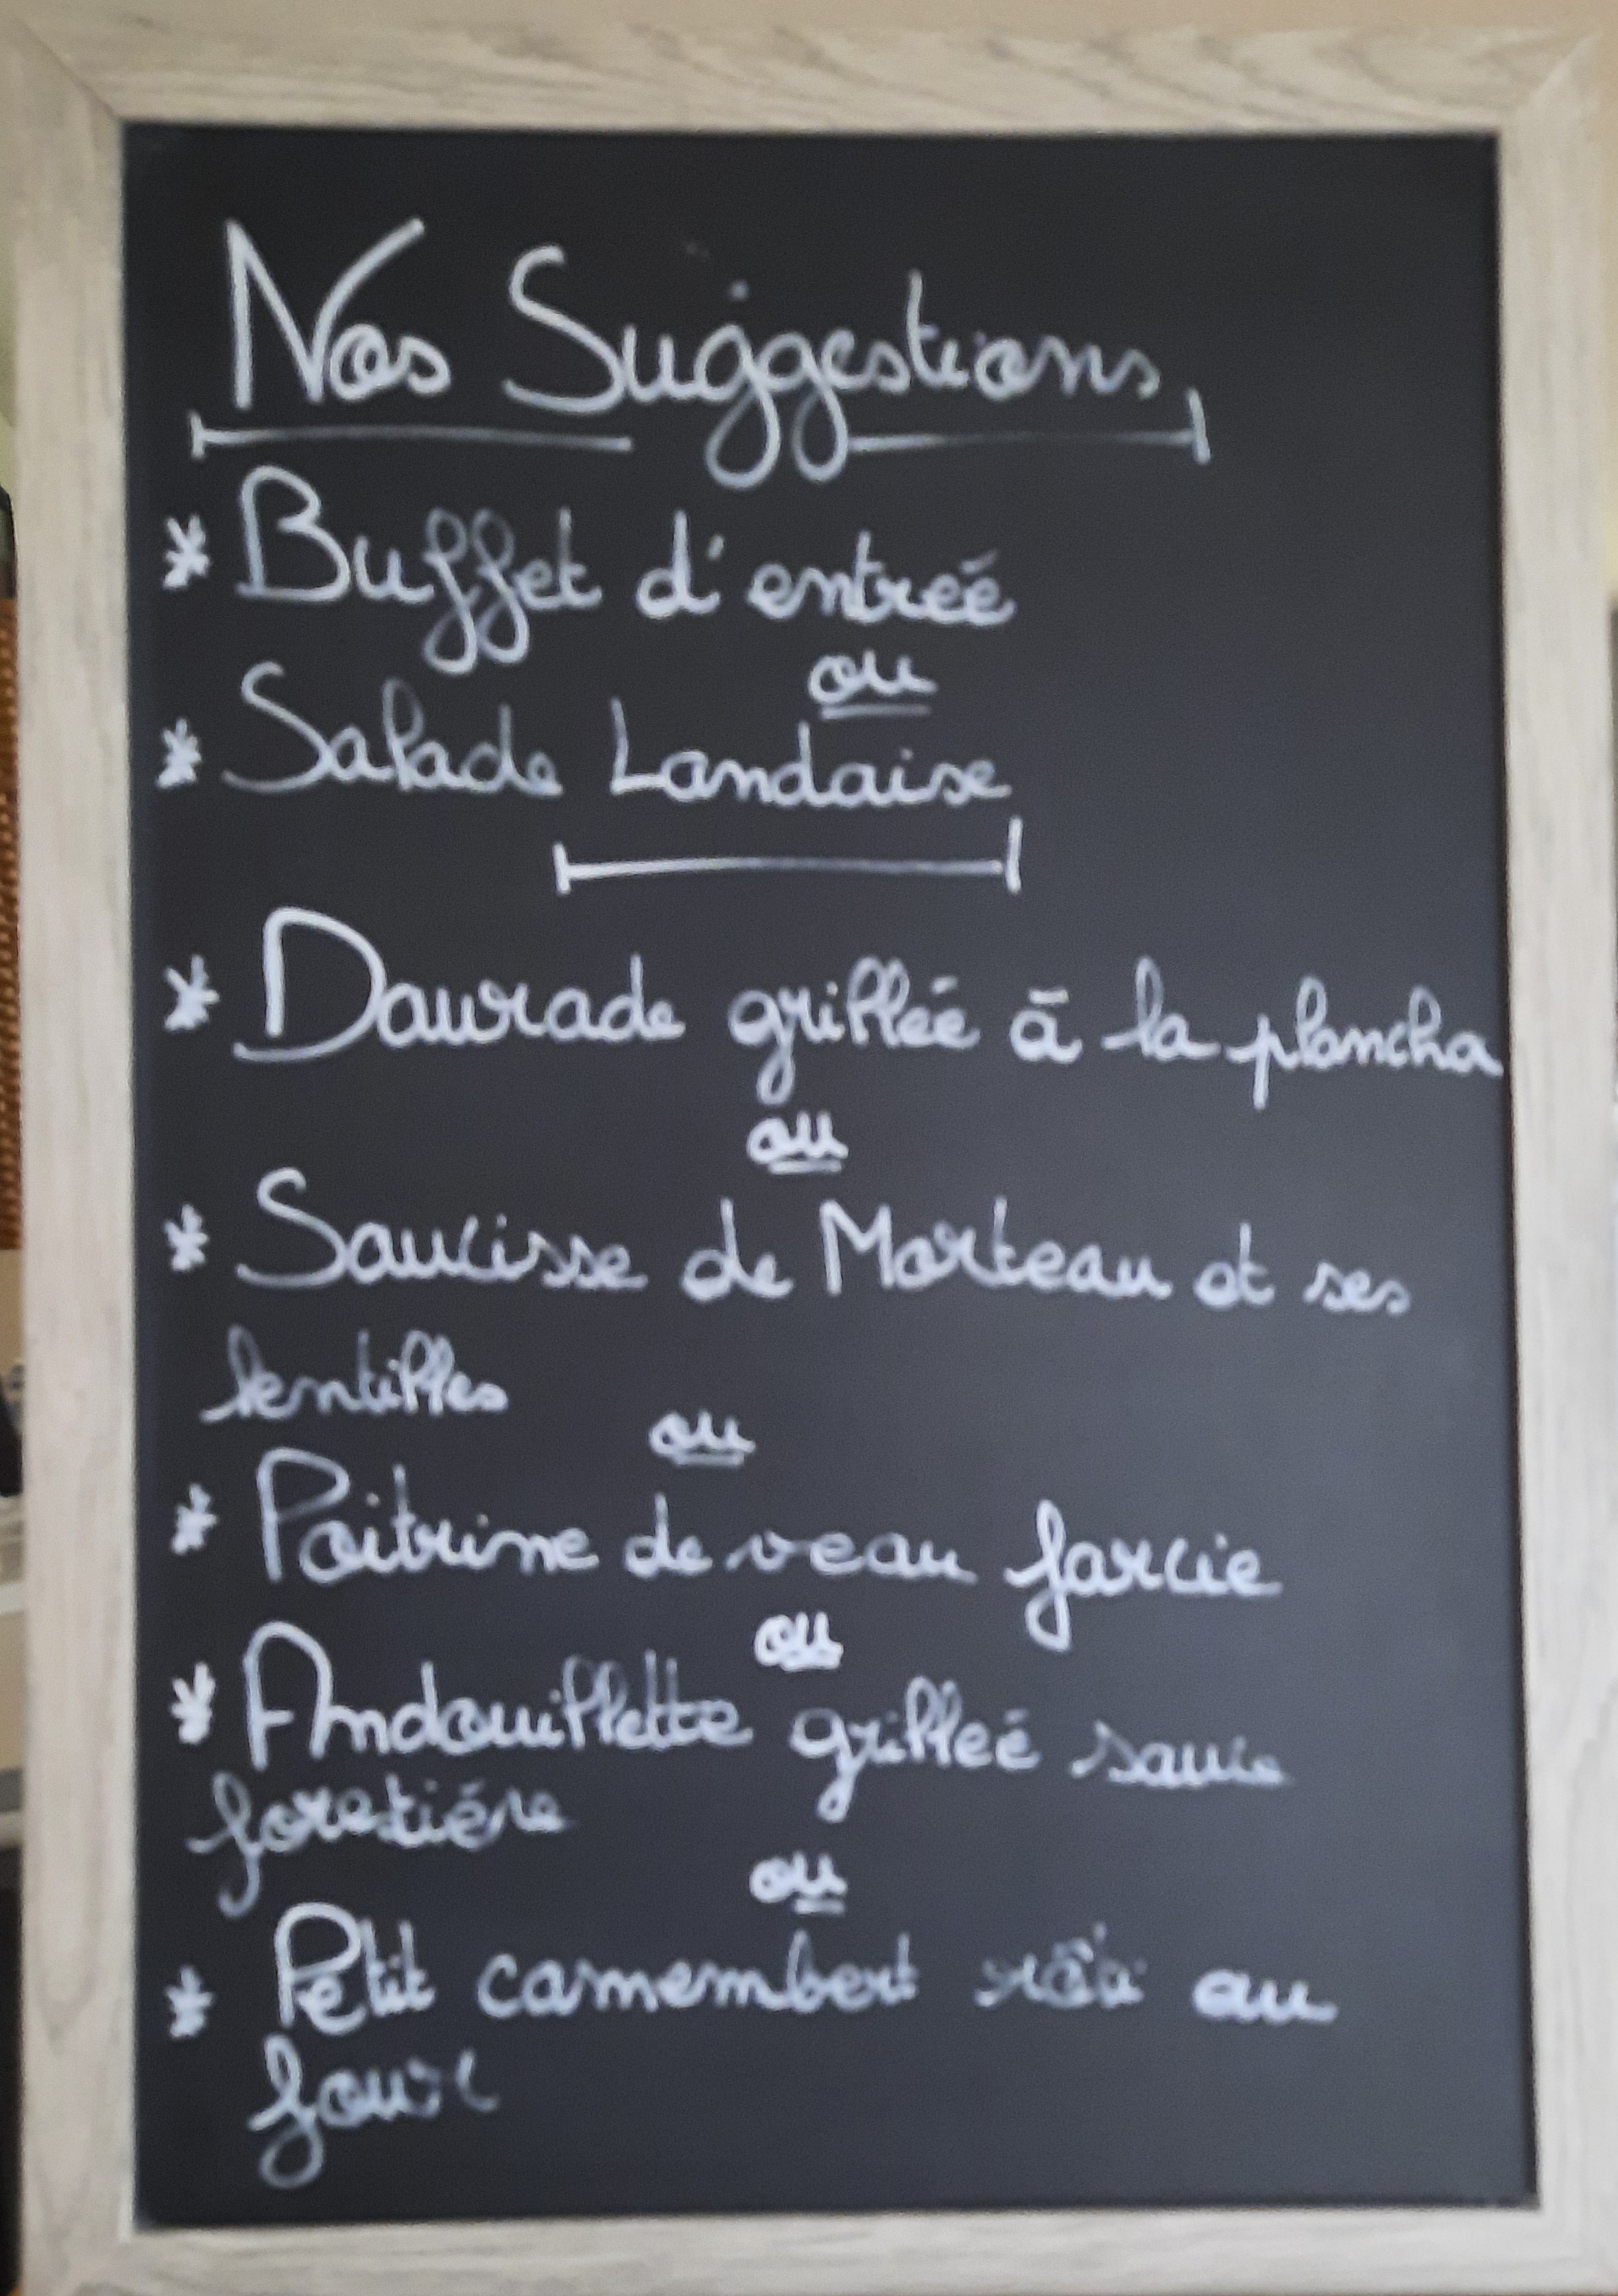 Nos Suggestions
* Buffet d'entreé
ou
* Salade Landaise
* Daurade grillée à la plancha
ou
* Saucisse de Morteau et ses
lentilles
ou
* Poitrine de veau farcie
ou
* Andouillette grilleé sauce
forestiére
ou
* Petit camembert rôti au
four